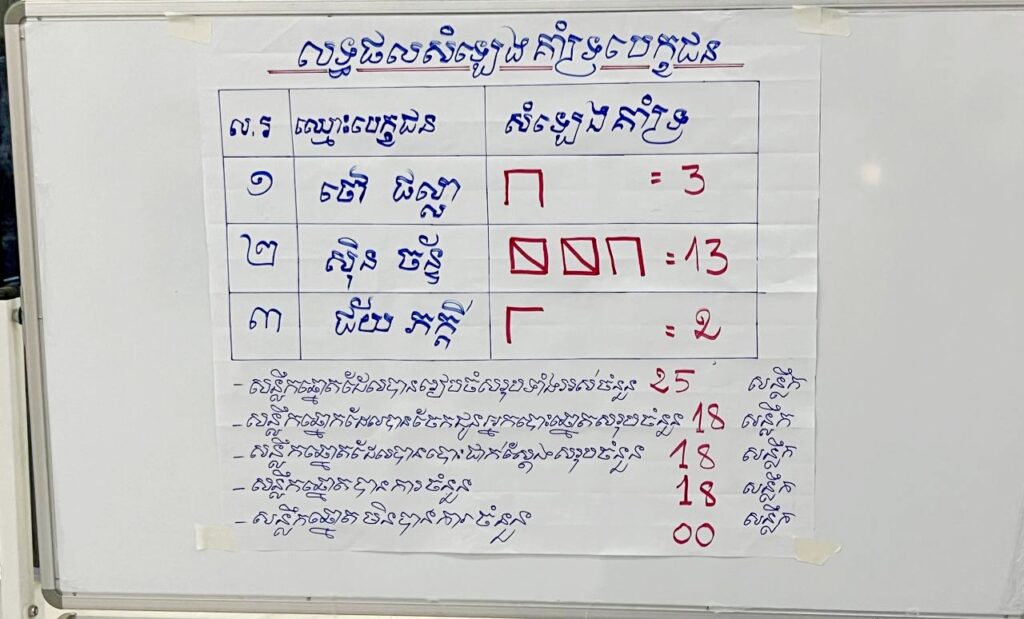 លទ្ធផលសំឡេងគាំទ្របេក្ខជន
ល.រ ឈ្មោះបេក្ខជន សំឡេងគាំទ្រ
១ ចៅ ផល្លា = 3
២ ស៊ិន ចន្ទ័ = 13
៣ ជ័យ ភក្ដី = 2
- សន្លឹកឆ្នោតដែលបានរៀបចំសរុបទាំងអស់ចំនួន 25 សន្លឹក
- សន្លឹកឆ្នោតដែលបានចែកជូនអ្នកបោះឆ្នោតសរុបចំនួន 18 សន្លឹក
- សន្លឹកឆ្នោតដែលបានបោះជាក់ស្ដែងសរុបចំនួន 18 សន្លឹក
- សន្លឹកឆ្នោតបានការចំនួន 18 សន្លឹក
- សន្លឹកឆ្នោតមិនបានការចំនួន 00 សន្លឹក